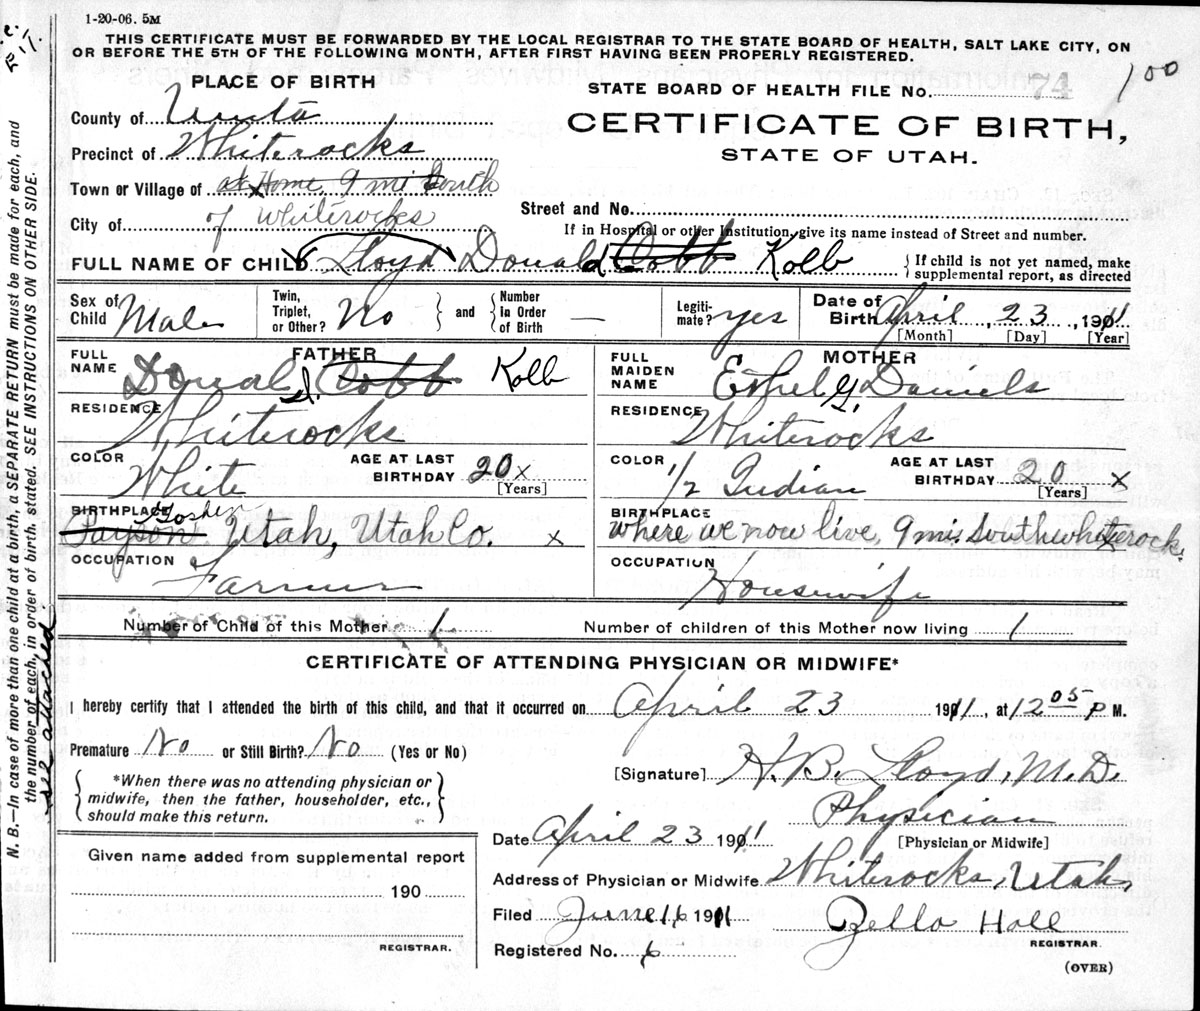 1-20-06. 5M
THIS CERTIFICATE MUST BE FORWARDED BY THE LOCAL REGISTRAR TO THE STATE BOARD OF HEALTH, SALT LAKE CITY, ON
OR BEFORE THE 5TH OF THE FOLLOWING MONTH, AFTER FIRST HAVING BEEN PROPERLY REGISTERED.
100
PLACE OF BIRTH
STATE BOARD OF HEALTH FILE NO. 74
County of Uinta
CERTIFICATE OF BIRTH,
Precinct of Whiterocks
STATE OF UTAH.
Town or Village of at Home, 9 mi South
City of of Whiterocks
Street and No.
If in Hospital or other Institution, give its name instead of Street and number.
FULL NAME OF CHILD Lloyd Donald Cobb Kolb
If child is not yet named, make
supplemental report, as directed
Sex of Child Male
Twin, Triplet, or Other? No
and
Number In Order of Birth —
Legitimate? yes
Date of Birth April, 23, 1911
[Month] [Day] [Year]
FATHER
FULL NAME Donal d. Cobb Kolb
MOTHER
FULL MAIDEN NAME Ethel G. Daniels
RESIDENCE Whiterocks
RESIDENCE Whiterocks
COLOR White
AGE AT LAST BIRTHDAY 20 x
[Years]
COLOR 1/2 Indian
AGE AT LAST BIRTHDAY 20 x
[Years]
BIRTHPLACE Payson Goshen Utah, Utah Co. x
BIRTHPLACE where we now live, 9 mi. South whiterock. x
OCCUPATION Farmer
OCCUPATION Housewife
Number of Child of this Mother 1
Number of children of this Mother now living 1
CERTIFICATE OF ATTENDING PHYSICIAN OR MIDWIFE*
I hereby certify that I attended the birth of this child, and that it occurred on April 23 1911, at 12 05 P M.
Premature No or Still Birth? No (Yes or No)
*When there was no attending physician or
midwife, then the father, householder, etc.,
should make this return.
[Signature] H. B. Lloyd, M.D.
Physician
[Physician or Midwife]
Date April 23 1911
Given name added from supplemental report
190
REGISTRAR.
Address of Physician or Midwife Whiterocks, Utah,
Filed June 16 1911
Zella Hall
REGISTRAR.
Registered No. 6
(OVER)
N. B.—In case of more than one child at a birth, a SEPARATE RETURN must be made for each, and
the number of each, in order of birth, stated. SEE INSTRUCTIONS ON OTHER SIDE.
see attached